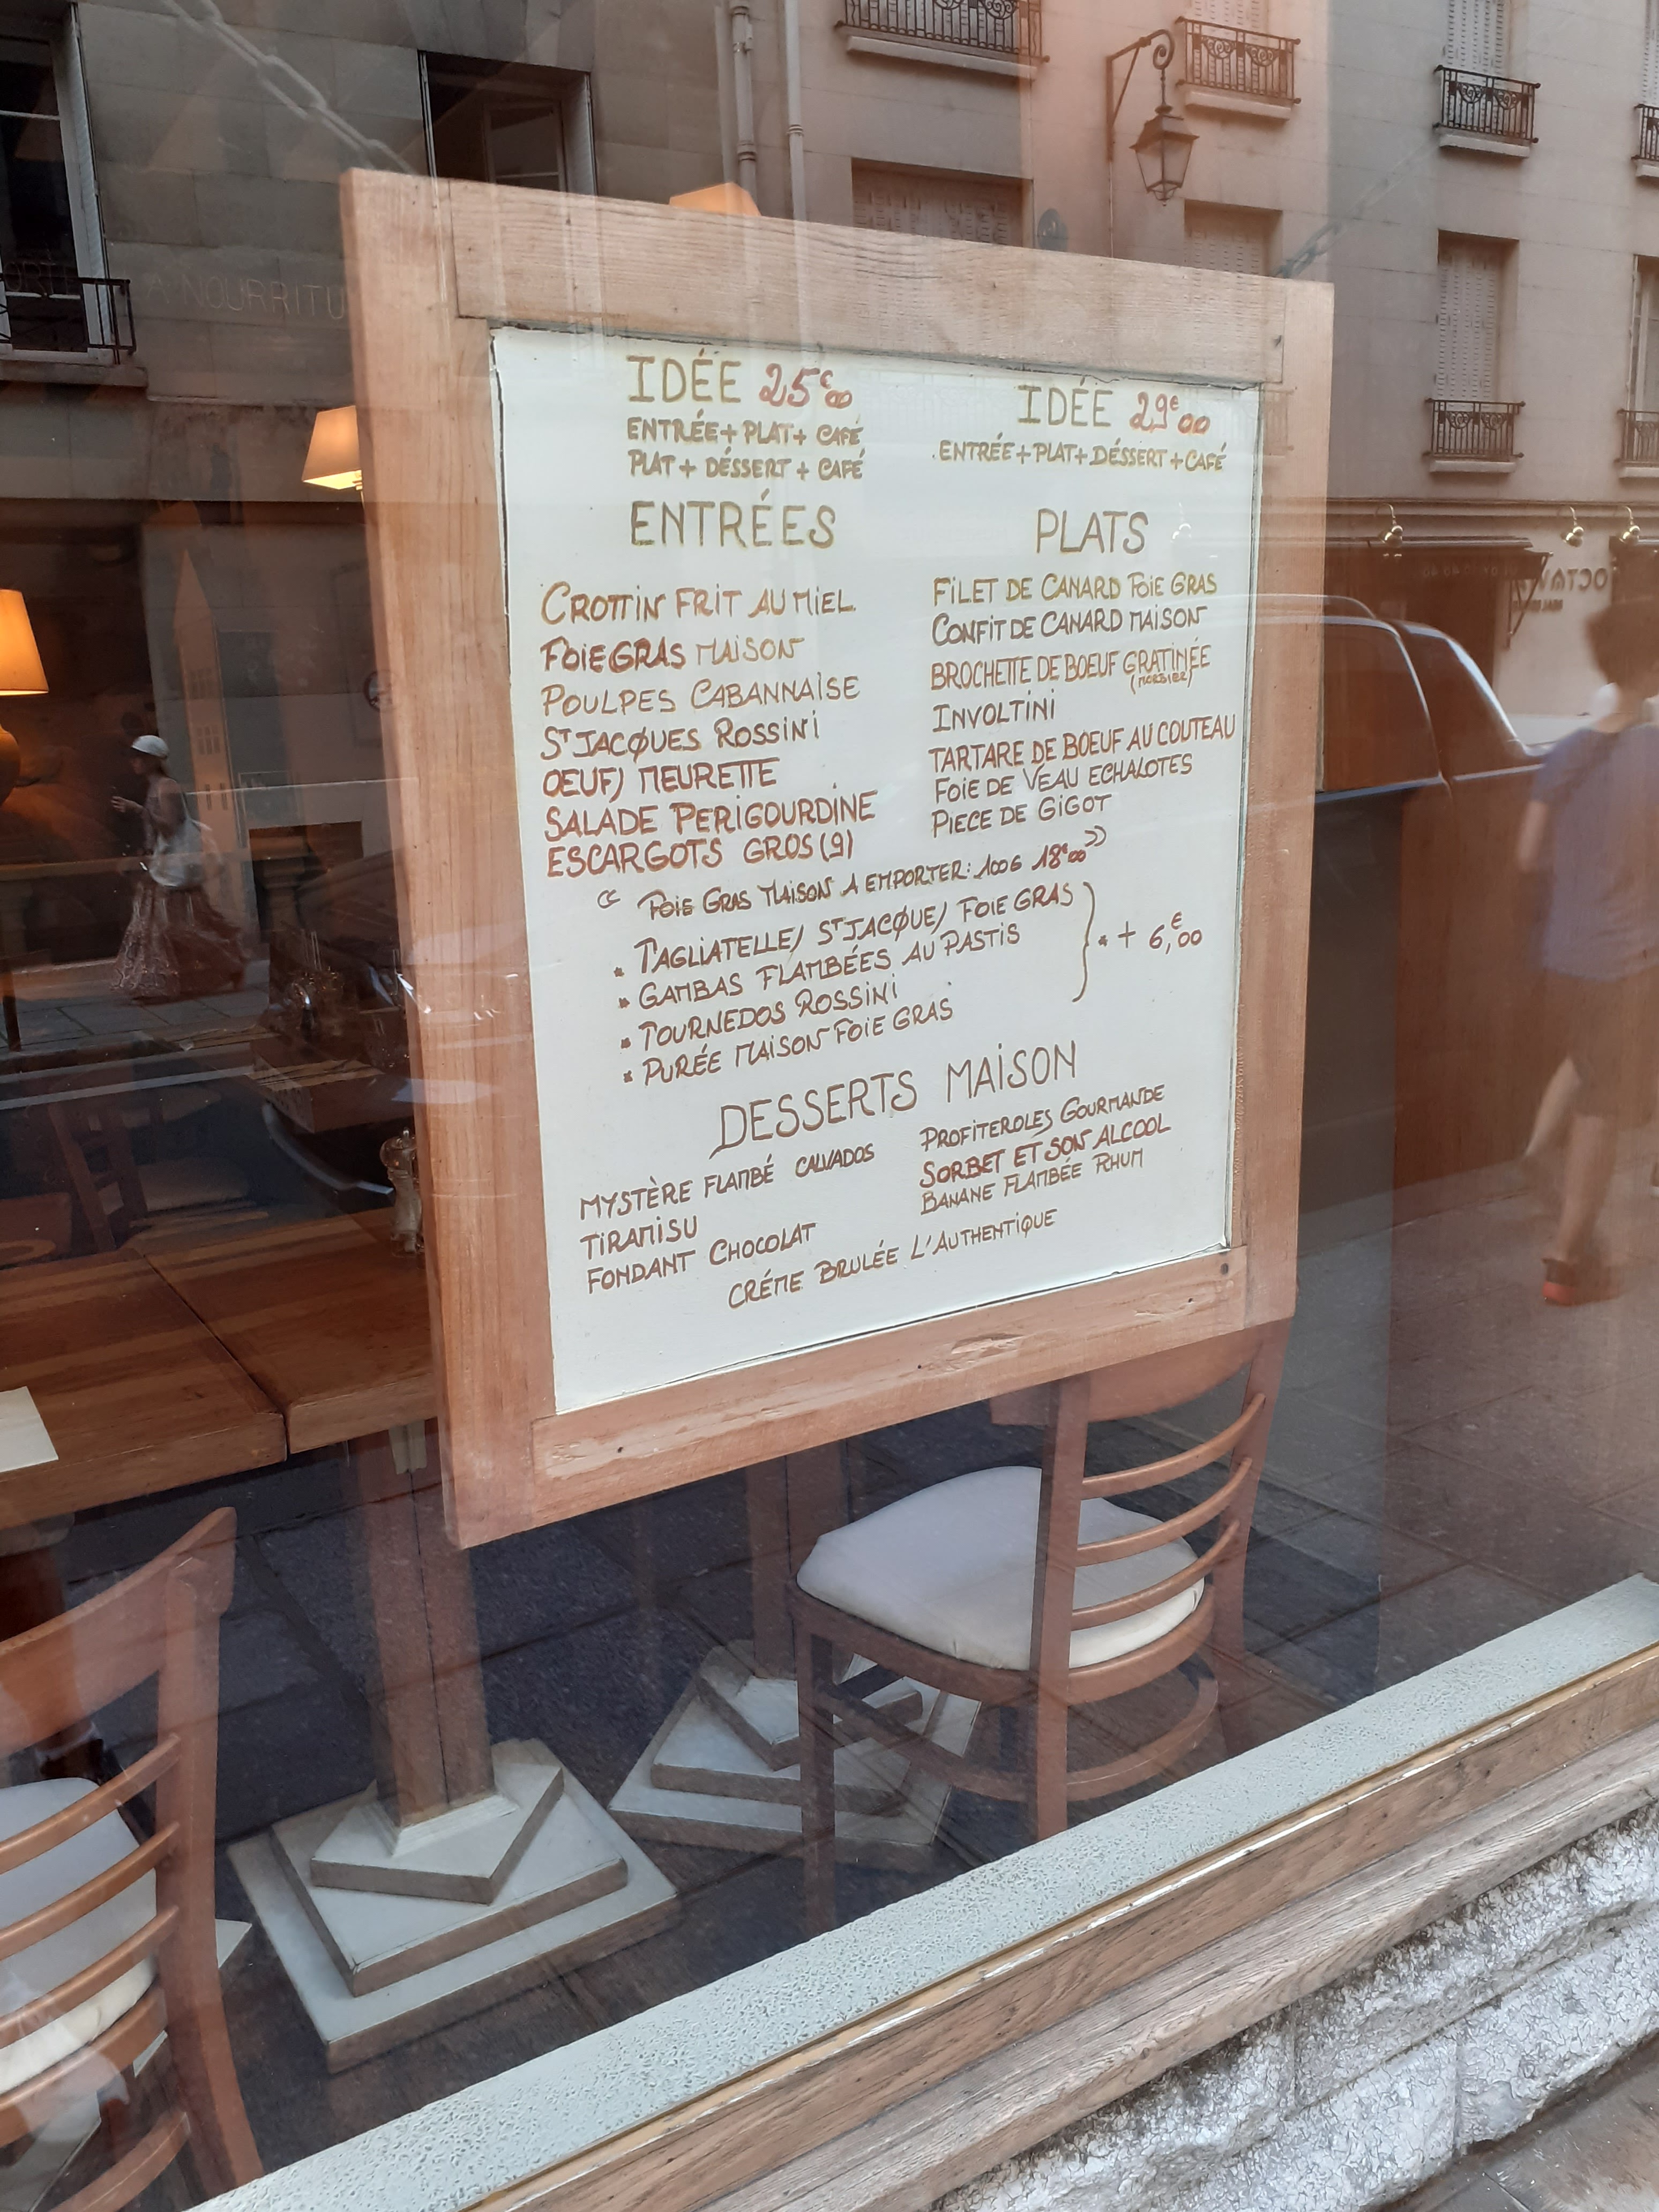 IDÉE 25€00
ENTRÉE + PLAT + CAFÉ
PLAT + DÉSSERT + CAFÉ
IDÉE 29€00
ENTRÉE + PLAT + DÉSSERT + CAFÉ
ENTRÉES
CROTTIN FRIT AU MIEL
FOIE GRAS MAISON
POULPES CABANNAISE
ST JACQUES ROSSINI
ŒUF) MEURETTE
SALADE PERIGOURDINE
ESCARGOTS GROS (9)
PLATS
FILET DE CANARD FOIE GRAS
CONFIT DE CANARD MAISON
BROCHETTE DE BOEUF GRATINÉE
(MORBIER)
INVOLTINI
TARTARE DE BOEUF AU COUTEAU
FOIE DE VEAU ECHALOTES
PIECE DE GIGOT
« FOIE GRAS MAISON A EMPORTER: 100G 18€00 »
* TAGLIATELLE/ ST JACQUE/ FOIE GRAS
* GAMBAS FLAMBÉES AU PASTIS
* TOURNEDOS ROSSINI
* PURÉE MAISON FOIE GRAS
* + 6,€00
DESSERTS MAISON
MYSTÈRE FLAMBÉ CALVADOS
TIRAMISU
FONDANT CHOCOLAT
PROFITEROLES GOURMANDE
SORBET ET SON ALCOOL
BANANE FLAMBÉE RHUM
CRÉME BRULÉE L'AUTHENTIQUE